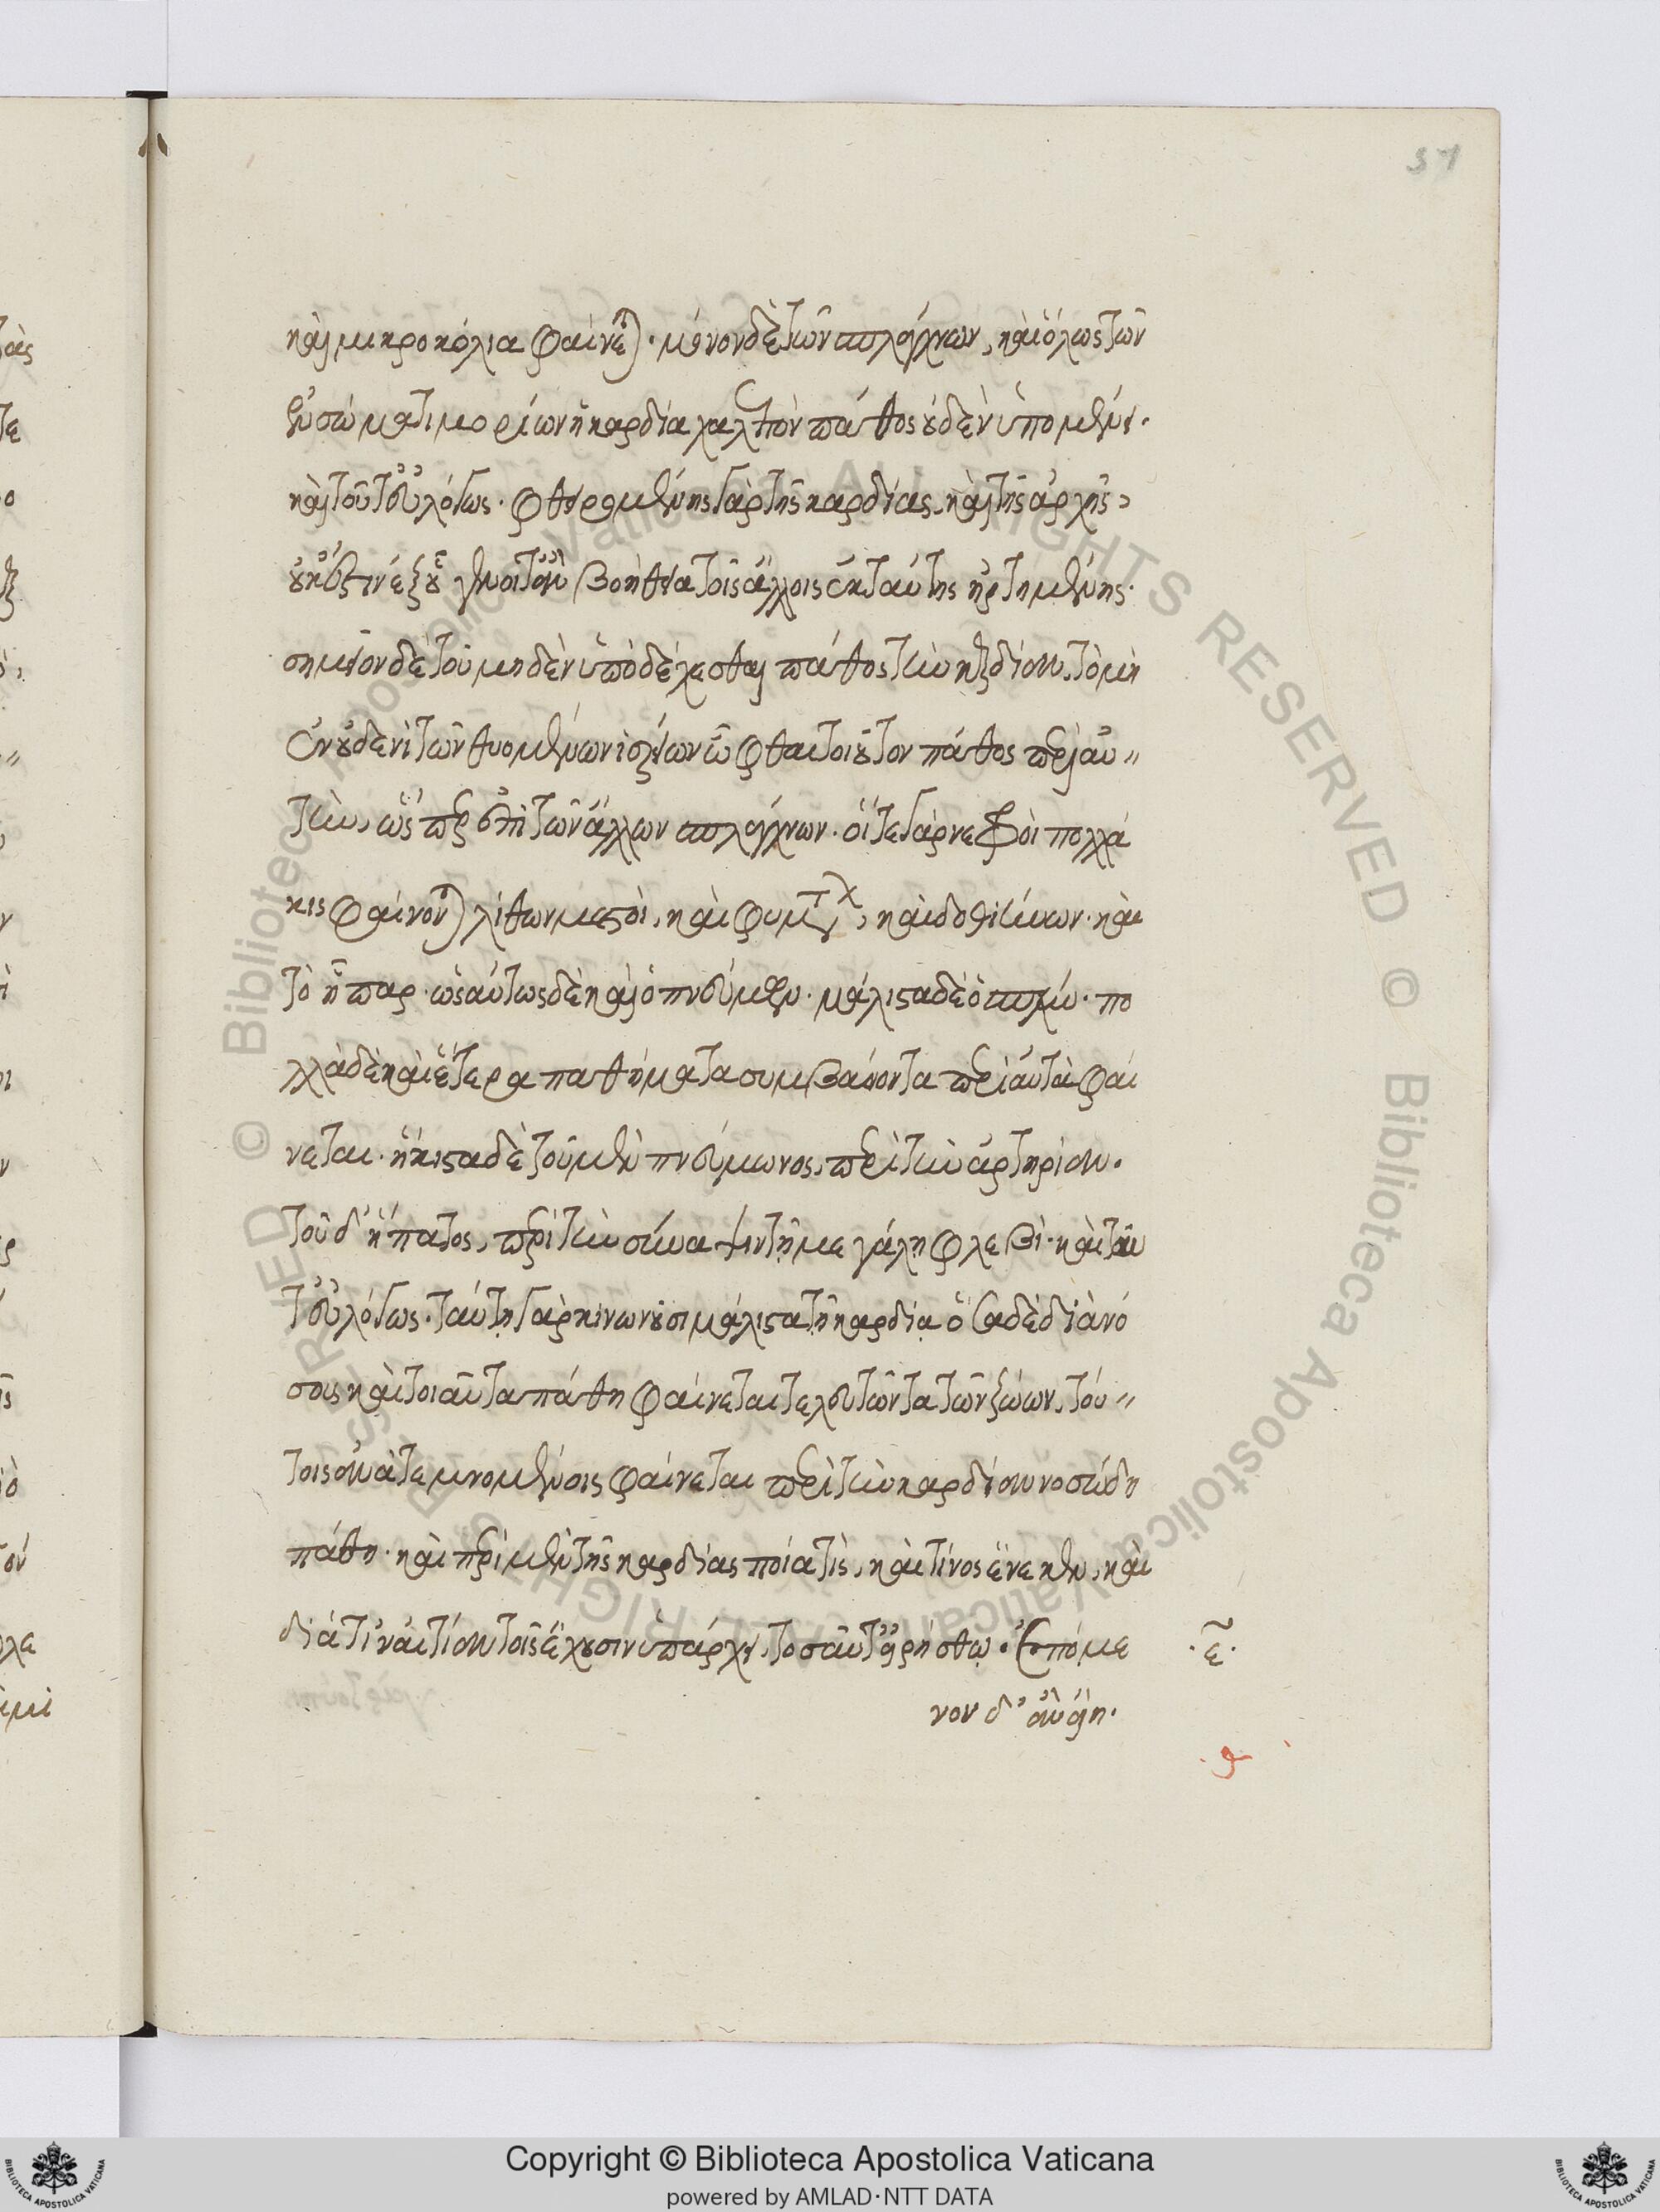 37
καὶ μικροκοίλια φαίνεται. μόνον δὲ τῶν σπλάγχνων, καὶ ὅλως τῶν
ἐν σώματι μορίων ἡ καρδία χαλεπὸν πάθος οὐδὲν ὑπομένει.
καὶ τοῦτ' εὐλόγως. φθειρομένης γὰρ τῆς καρδίας, καὶ τῆς ἀρχῆς,
οὐκ ἔστιν ἐξ οὗ γένοιτ' ἂν βοήθεια τοῖς ἄλλοις ἐκ ταύτης ἠρτημένης.
σημεῖον δὲ τοῦ μηδὲν ὑποδέχεσθαι πάθος τὴν καρδίαν, τὸ μὴ
ἐν οὐδενὶ τῶν θυομένων ἱερείων ὦφθαι τοιοῦτον πάθος περὶ αὐ〃
τὴν, ὥσπερ ἐπὶ τῶν ἄλλων σπλάγχνων. οἵ τε γὰρ νεφροὶ πολλά
κις φαίνονται λίθων μεστοὶ, καὶ φυμάτων, καὶ δοθιήνων. καὶ
τὸ ἧπαρ. ὡσαύτως δὲ καὶ ὁ πνεύμων. μάλιστα δὲ ὁ σπλήν. πο
λλὰ δὲ καὶ ἕτερα παθήματα συμβαίνοντα περὶ αὐτὰ φαί
νεται. ἥκιστα δὲ τοῦ μὲν πνεύμονος, περὶ τὴν ἀρτηρίαν.
τοῦ δ' ἥπατος, περὶ τὴν σύναψιν τῇ μεγάλῃ φλεβί. καὶ ταῦ
τ' εὐλόγως. ταύτῃ γὰρ κινωνοῦσι μάλιστα τῇ καρδίᾳ ὅσα δὲ διὰ νό
σοις καὶ τοιαῦτα πάθη φαίνεται τελευτῶντα τῶν ζώων, τού〃
τοις ἀνατεμνομένοις φαίνεται περὶ τὴν καρδίαν νοσώδη
πάθη. καὶ περὶ μὲν τῆς καρδίας ποία τὶς, καὶ τίνος ἕνεκεν, καὶ
διὰ τίν' αἰτίαν τοῖς ἔχουσιν ὑπάρχει, τοσαῦτ' εἰρήσθω. ἑπόμε
·ε̃·
νον δ' ἂν εἴη.